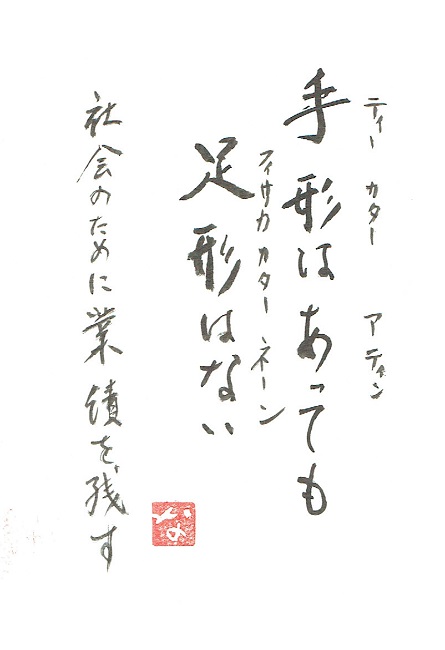 ティーカター アティン
手形はあっても
フィサカターネーン
足形はない
社会のために業績を残す